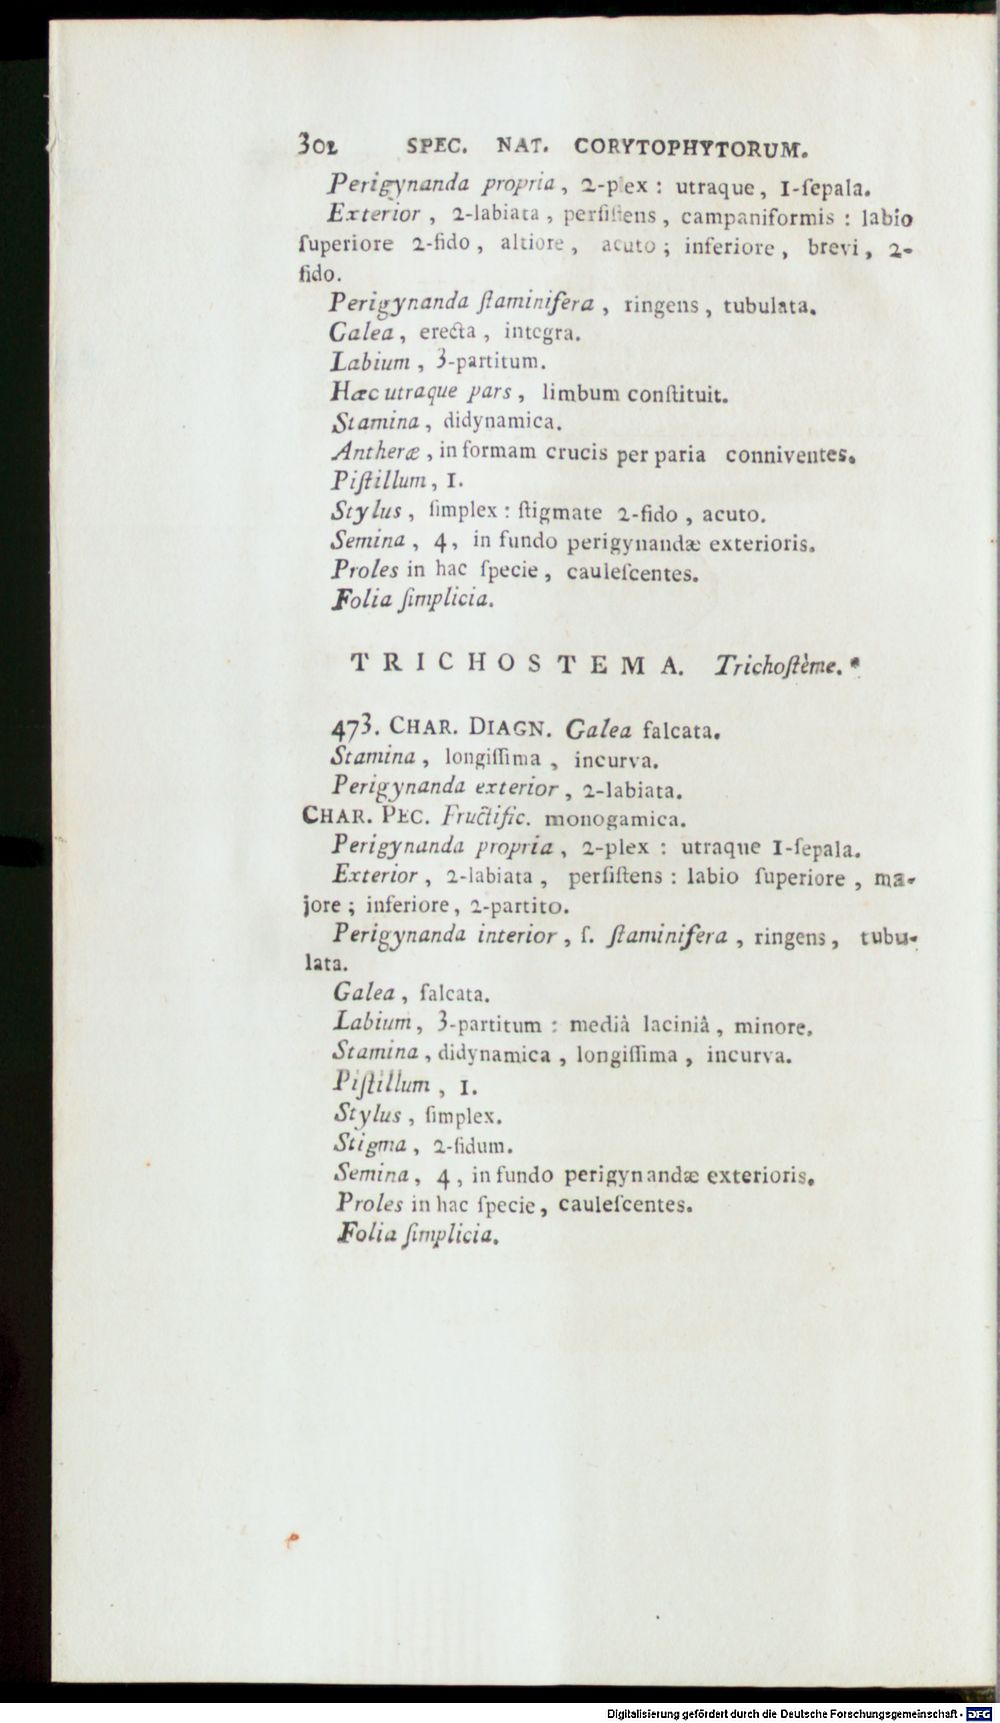 302 SPEC. NAT. CORYTOPHYTORUM.
Perigynanda propria, 2-p ex : utraque, 1-ſepala.
Exterior, 2-labiata, perſiſtens, campaniformis : labio
ſuperiore 2-fido, altiore, acuto ; inferiore, brevi, 2-
fido.
Perigynanda ſtaminifera, ringens, tubulata.
Galea, erecta, integra.
Labium, 3-partitum.
Hæc utraque pars, limbum conſtituit.
Stamina, didynamica.
Antheræ, in formam crucis per paria conniventes.
Piſtillum, 1.
Stylus, ſimplex : ſtigmate 2-fido, acuto.
Semina, 4, in fundo perigynandæ exterioris.
Proles in hac ſpecie, cauleſcentes.
Folia ſimplicia.
TRICHOSTEMA. Trichoſtème. *
473. CHAR. DIAGN. Galea falcata.
Stamina, longiſſima, incurva.
Perigynanda exterior, 2-labiata.
CHAR. PEC. Fructific. monogamica.
Perigynanda propria, 2-plex : utraque 1-ſepala.
Exterior, 2-labiata, perſiſtens : labio ſuperiore, ma-
jore ; inferiore, 2-partito.
Perigynanda interior, ſ. ſtaminifera, ringens, tubu-
lata.
Galea, falcata.
Labium, 3-partitum : mediâ laciniâ, minore.
Stamina, didynamica, longiſſima, incurva.
Piſtillum, 1.
Stylus, ſimplex.
Stigma, 2-fidum.
Semina, 4, in fundo perigynandæ exterioris.
Proles in hac ſpecie, cauleſcentes.
Folia ſimplicia.
Digitalisierung gefördert durch die Deutsche Forschungsgemeinschaft - DFG